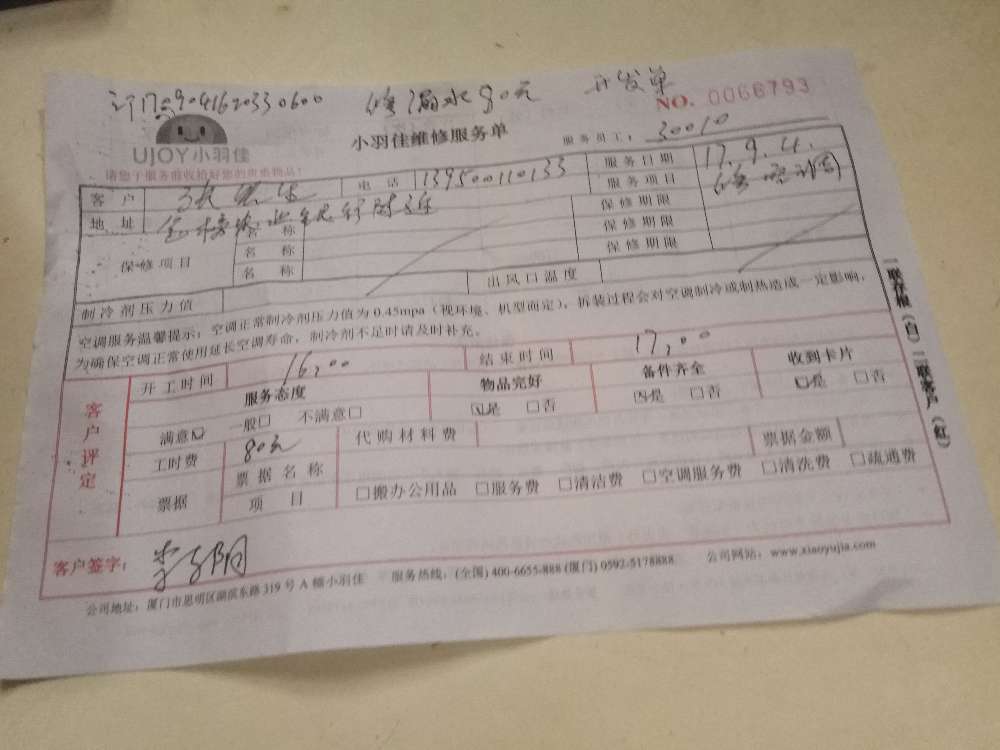 订1709041620330600 修漏水80元 开发单
NO. 0066793
UJOY小羽佳
小羽佳维修服务单
服务员工: 30010
请您于服务前收拾好您的贵重物品!
客户 电话 13950110133 服务日期 17.9.4.
地址 服务项目 修空调
保修项目 名称 保修期限
名称 保修期限
名称 保修期限
制冷剂压力值 出风口温度
空调服务温馨提示:空调正常制冷剂压力值为0.45mpa(视环境、机型而定),拆装过程会对空调制冷或制热造成一定影响,
为确保空调正常使用延长空调寿命,制冷剂不足时请及时补充。
客户评定
开工时间 16:00 结束时间 17:00
服务态度 物品完好 备件齐全 收到卡片
满意☑ 一般□ 不满意□ ☑是 □否 ☑是 □否 ☑是 □否
工时费 80元 代购材料费 票据金额
票据 票据名称
项目 □搬办公用品 □服务费 □清洁费 □空调服务费 □清洗费 □疏通费
客户签字:
公司地址:厦门市思明区湖滨东路319号A幢小羽佳 服务热线:(全国)400-6655-888 (厦门)0592-5178888 公司网站:www.xiaoyujia.com
一联存根(白) 二联客户(红)